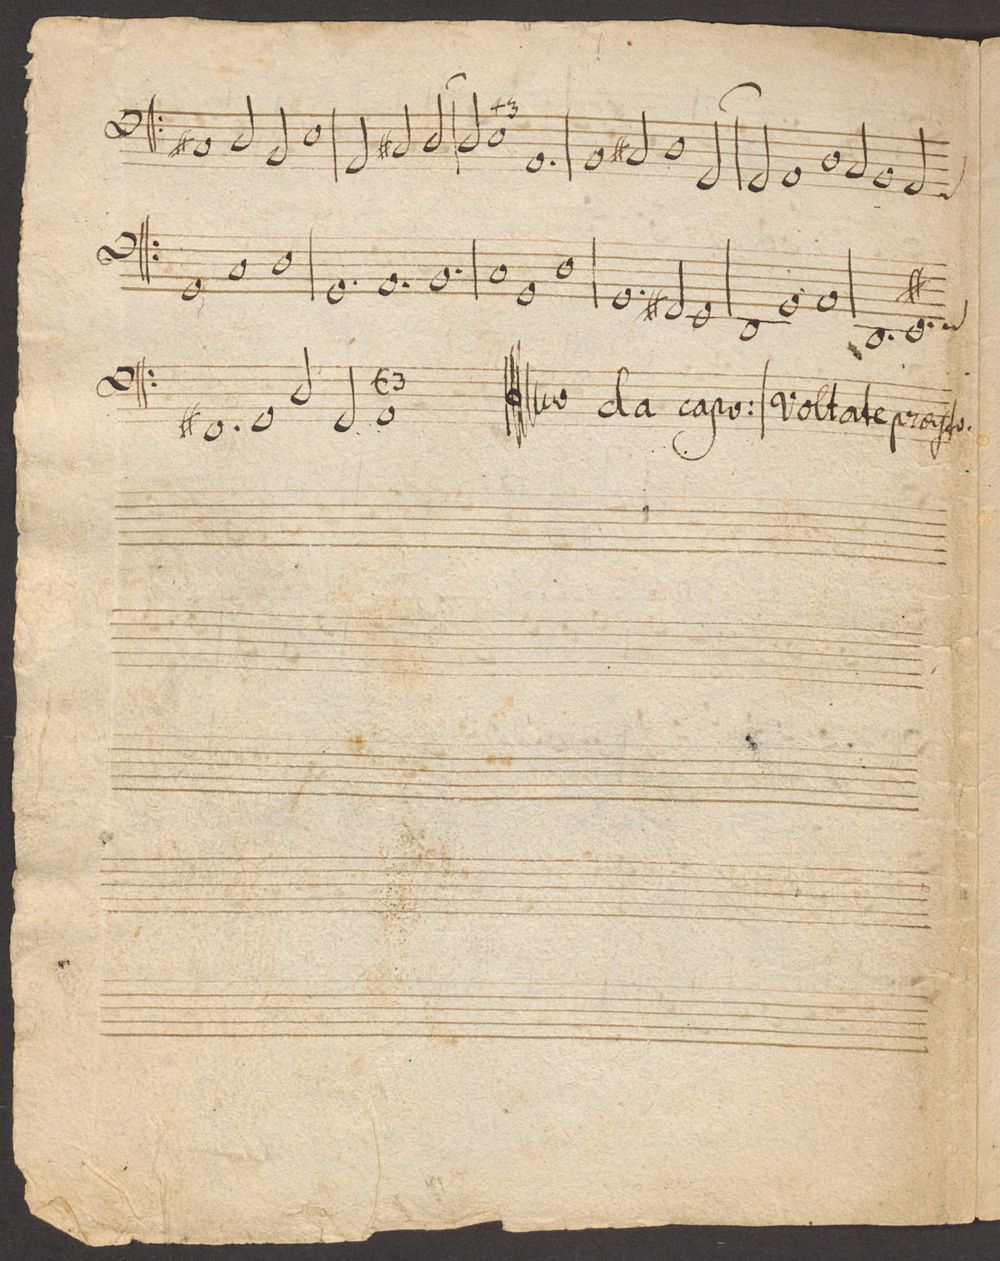 43
43
da capo: Voltate presto.